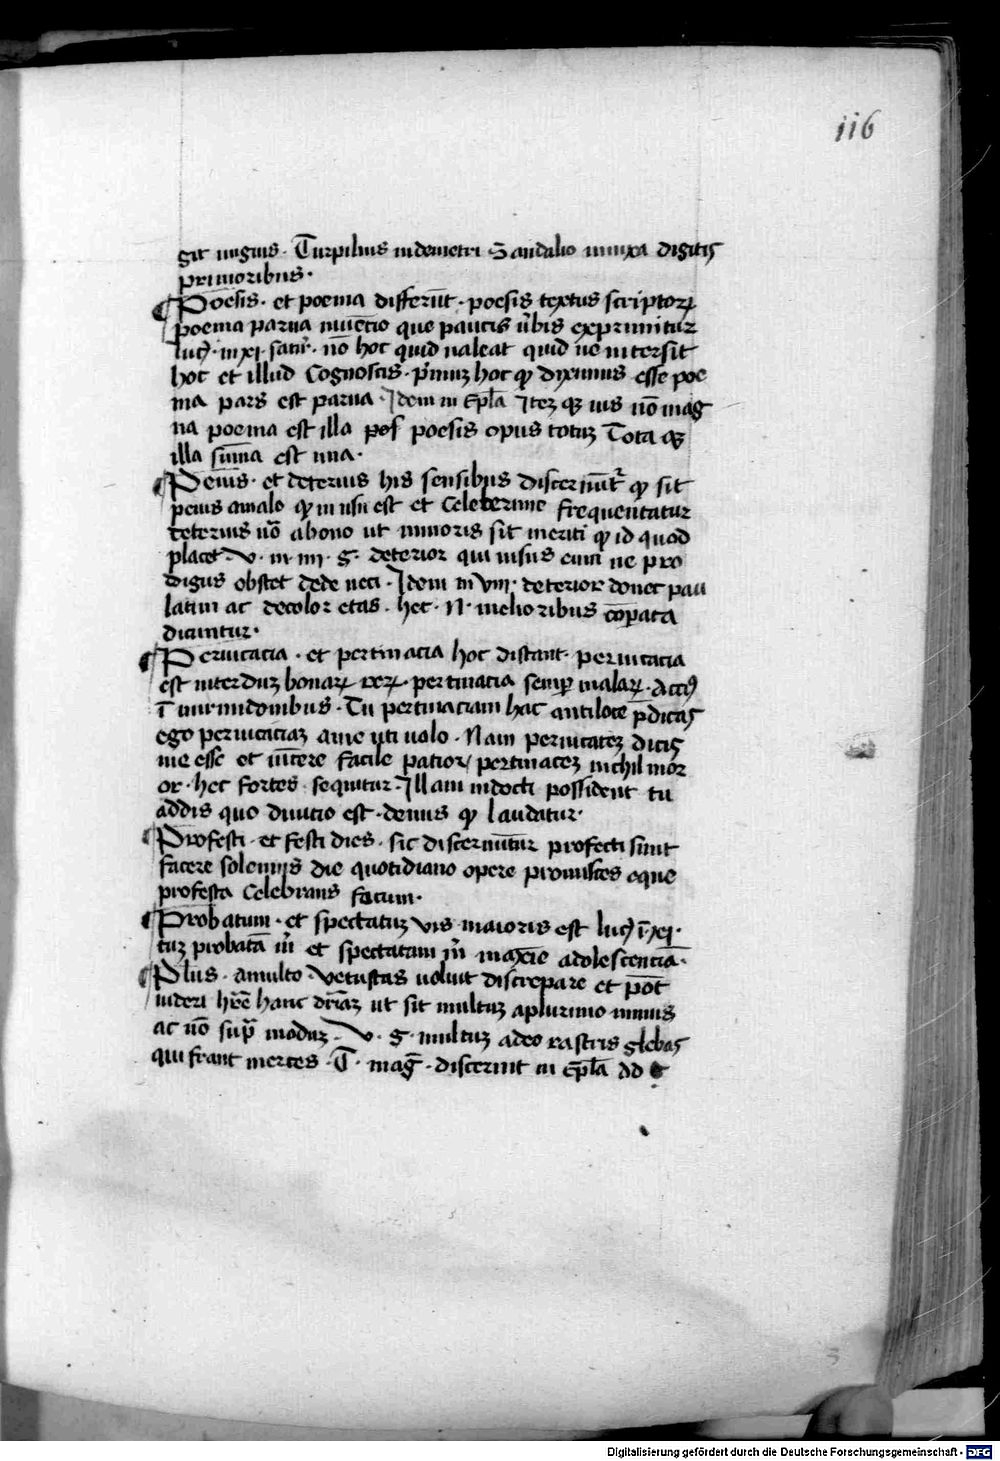 116
git uugius. Turpilius in demetri Sandalio innixa digitis
primoribus.
Poesis. et poema differūt. poesis textus scriptorꝝ
poema parua inuētio que paucis ūbis exprimitur
lucꝰ. in xi. satir̄. nō hoc quid ualeat quid ue intersit
hoc et illud Cognoscis. pͥmuʒ hoc qͩ diximus esse poe
ma pars est parua. Idem in Epl̄a Iteʒ qʒ uis nō mag
na poema est illa poesis opus totuʒ Tota qʒ
illa sūma est una.
Peius. et deterius his sensibus discernūtͬ qͩ sit
peius amalo qͩ in usu est et Celeberime frequentatur
teterius nō abono ut minoris sit meriti qͩ id quod
placet. V. in. iiii. g. deterior qui uisus eum ne pro
digus obstet dede neci. Idem in viii. deterior donec pau
latim ac decolor etas. hec. N. melioribus cōpata
dicuntur.
Peruicacia. et pertinacia hoc distant. peruicacia
est interduʒ bonaꝝ reꝝ. pertinacia semꝑ malaꝝ. Acciꝰ
ī mirmidonibus. Tu pertinaciam hac antiloce p̄dicas
ego peruicaciaʒ aiue uti uolo. Nam peruicaceʒ dicis
me esse et uīcere facile patior / pertinaceʒ nichil mor
or. hec fortes sequitur. Illam indocti possident tu
addis quo diuicio est. demis qͩ laudatur.
Profesti. et festi dies. sic discernūtur profecti sunt
facere solennis die quotidiano opere promisces eque
profesta Celebrans facum.
Probatum. et spectatuʒ vis maioris est lucꝰ ī. xi.
tuʒ probatā m̄ et spectatam m̄ maxīe adolescenciā.
Plus. amulto. vetustas uoluit discrepare et pōt
uideri hr̄e hanc dr̄iaʒ ut sit multuʒ aplurimo minus
ac nō supͣ moduʒ. V. g. multuʒ adeo rastris glebas
qui frant inertes. T. mag̅. discerint in Epl̄a ad
Digitalisierung gefördert durch die Deutsche Forschungsgemeinschaft - DFG